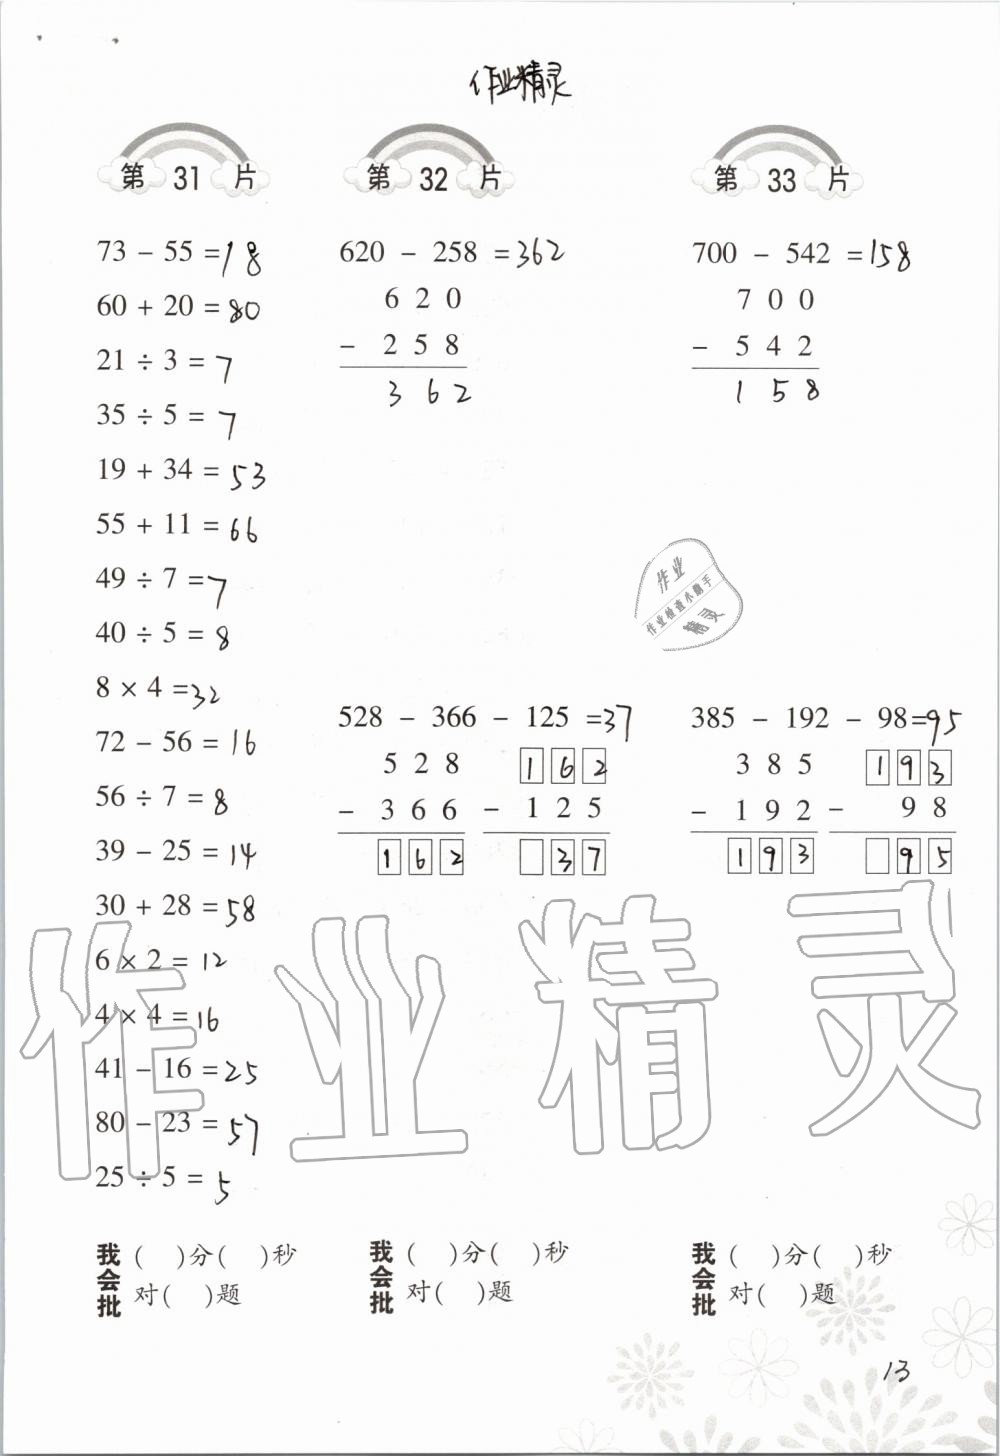 作业精灵
第 31 片
73 − 55 = 18
60 + 20 = 80
21 ÷ 3 = 7
35 ÷ 5 = 7
19 + 34 = 53
55 + 11 = 66
49 ÷ 7 = 7
40 ÷ 5 = 8
8 × 4 = 32
72 − 56 = 16
56 ÷ 7 = 8
39 − 25 = 14
30 + 28 = 58
6 × 2 = 12
4 × 4 = 16
41 − 16 = 25
80 − 23 = 57
25 ÷ 5 = 5
我会批
( )分( )秒
对( )题
第 32 片
620 − 258 = 362
6 2 0
− 2 5 8
3 6 2
528 − 366 − 125 = 37
5 2 8
− 3 6 6
1 6 2
1 6 2
− 1 2 5
3 7
我会批
( )分( )秒
对( )题
第 33 片
700 − 542 = 158
7 0 0
− 5 4 2
1 5 8
作业
作业检查小助手
精灵
385 − 192 − 98 = 95
3 8 5
− 1 9 2
1 9 3
1 9 3
− 9 8
9 5
我会批
( )分( )秒
对( )题
作业精灵
13